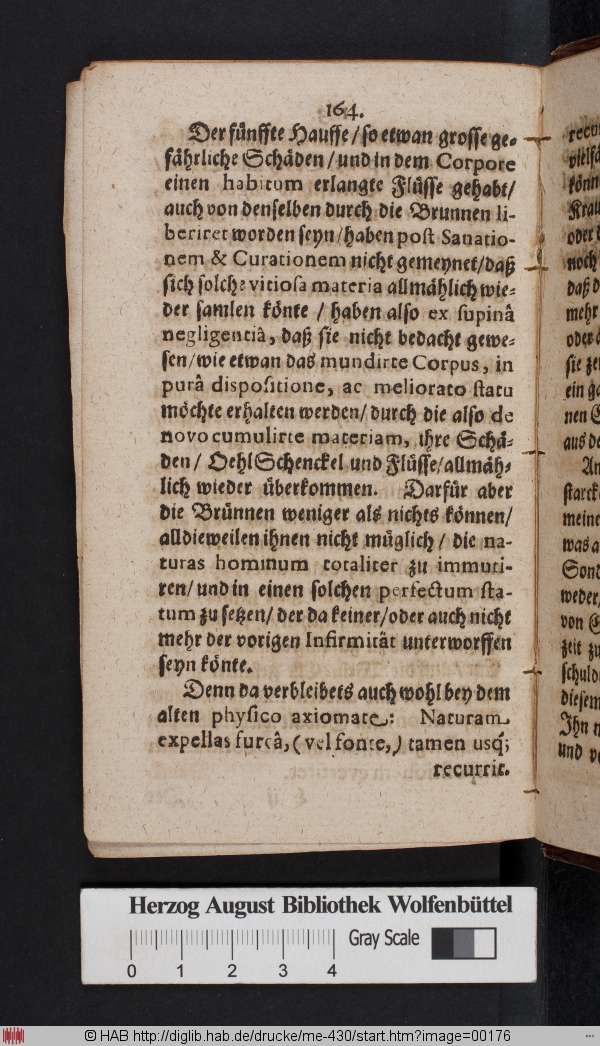 164.
Der fünffte Hauffe / so etwan grosse ge-
fährliche Schäden / und in dem Corpore
einen habitum erlangte Flüsse gehabt /
auch von denselben durch die Brunnen li-
beriret worden seyn / haben post Sanatio-
nem & Curationem nicht gemeynet / daß
sich solche vitiosa materia allmählich wie-
der samlen könte / haben also ex supinâ
negligentiâ, daß sie nicht bedacht gewe-
sen / wie etwan das mundirte Corpus, in
purâ dispositione, ac meliorato statu
möchte erhalten werden / durch die also de
novo cumulirte materiam, ihre Schä-
den / Oehl Schenckel und Flüsse / allmäh-
lich wieder überkommen. Darfür aber
die Brünnen weniger als nichts können /
alldieweilen ihnen nicht müglich / die na-
turas hominum totaliter zu immuti-
ren / und in einen solchen perfectum sta-
tum zu setzen / der da keiner / oder auch nicht
mehr der vorigen Infirmität unterworffen
seyn könte.
Denn da verbleibets auch wohl bey dem
alten physico axiomate: Naturam
expellas furcâ, (vel fonte,) tamen usq́;
recurrit.
vielfä
könn
Krau
oder
noch
daß d
mehr
oder
sie ze
ein ga
nen G
aus de
An
starck
meine
was a
Sond
weder,
von G
zeit zu
schuld
diesem
Ihn n
und v
Herzog August Bibliothek Wolfenbüttel
Gray Scale
0 1 2 3 4
© HAB http://diglib.hab.de/drucke/me-430/start.htm?image=00176